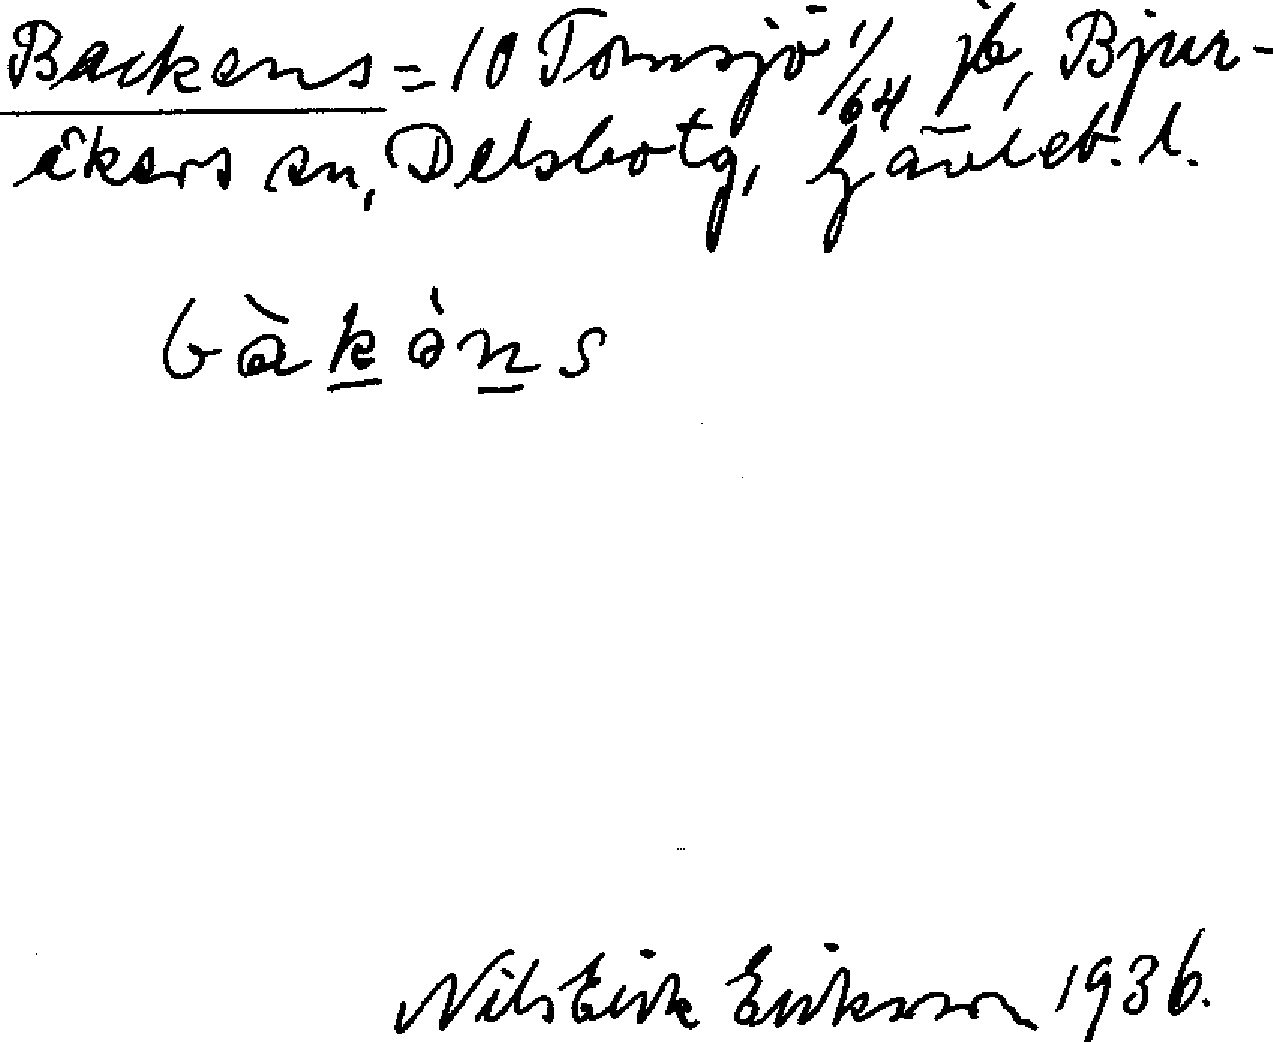 Backens = 10 Tomsjö 1/64 jb, Bjur-
åkers sn, Delsbo tg, Gävleb. l.
bàkὸns
Nils Eirik Eriksson 1936.